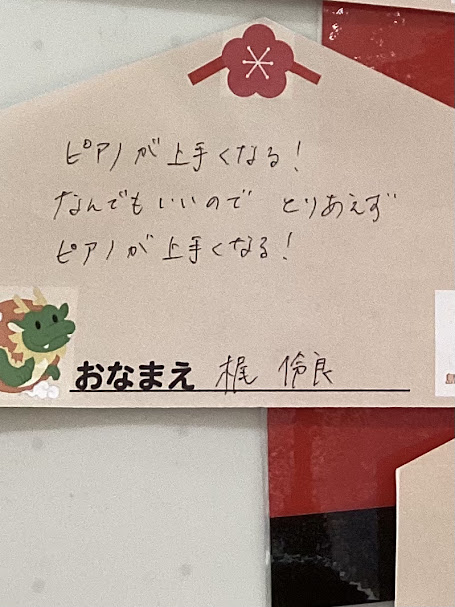 ピアノが上手くなる!
なんでもいいので とりあえず
ピアノが上手くなる!
おなまえ 梶 伶良